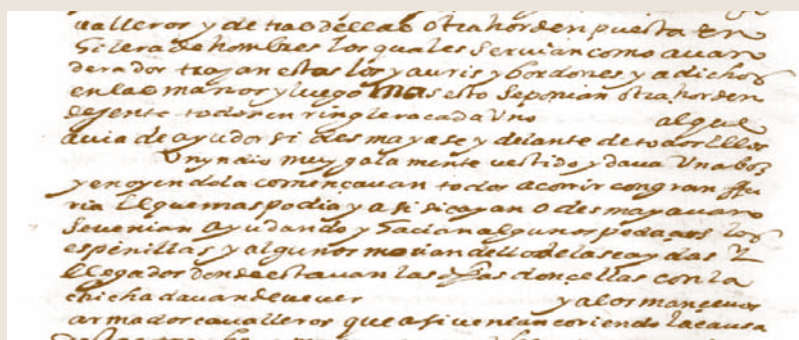 ualleros y detras dellas otra horden puesta en
hilera de hombres los quales seruian como auan
derador trayan estas los yauris y bordones ya dichos
en las manos y luego tras esto se ponian otra horden
de jente todos en ringlera cada uno al que
auia de ayudar si desmayase y delante de todos ellos
Un yndio muy galamente uestido y daua una boz
y en oyendola començauan todos a corrir con gran ffu
ria el que mas podia y asi si cayan o desmayauan
se uenian ayudando y hacian algunos pedaços los
espinillas y algunos morian dello de las caydas Y
llegados donde estauan las dhas donçellas con la
chicha dauan de veuer y a los mançeuos
armados caualleros que asi uenian coriendo la causa